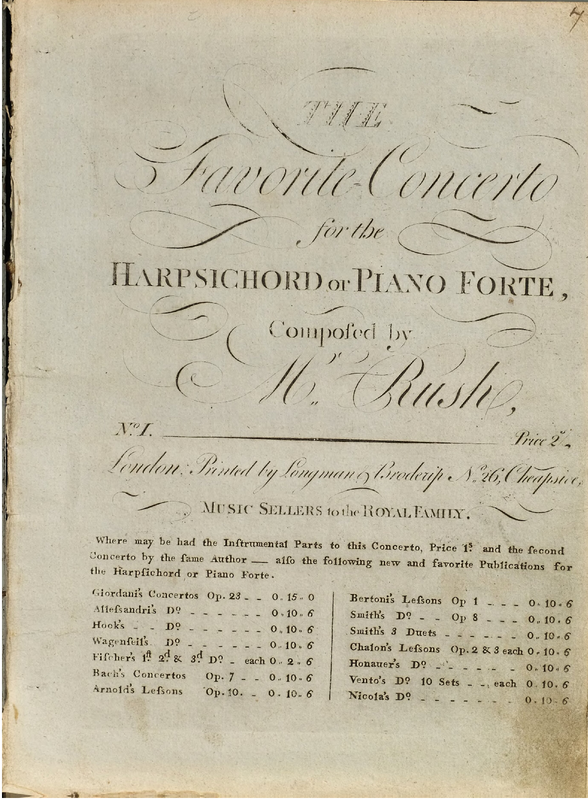 7
THE
Favorite Concerto
for the
HARPSICHORD or PIANO FORTE,
Compoſed by
Mr. Rush,
No. I. Price 2s.
London: Printed by Longman & Broderip No. 26, Cheapside,
MUSIC SELLERS to the ROYAL FAMILY.
Where may be had the Inſtrumental Parts to this Concerto, Price 1s. and the second
Concerto by the ſame Author — alſo the following new and favorite Publications for
the Harpſichord or Piano Forte.
Giordani's Concertos Op. 23 - - 0-15-0
Alleſsandri's Do. - - - - - - - 0-10-6
Hook's - - Do. - - - - - - - 0-10-6
Wagenſeil's Do. - - - - - - - 0-10-6
Fiſcher's 1st 2d & 3d Do. - each 0-2-6
Bach's Concertos Op. 7 - - - 0-10-6
Arnold's Leſsons Op. 10 - - 0-10-6
Bertoni's Leſsons Op 1 - - - 0-10-6
Smith's Do. - - Op 8 - - - 0-10-6
Smith's 3 Duets - - - - - - 0-10-6
Chalon's Leſsons Op. 2 & 3 each 0-10-6
Honauer's Do. - - - - - - - 0-10-6
Vento's Do. 10 Sets - - each 0-10-6
Nicola's Do. - - - - - - - 0-10-6